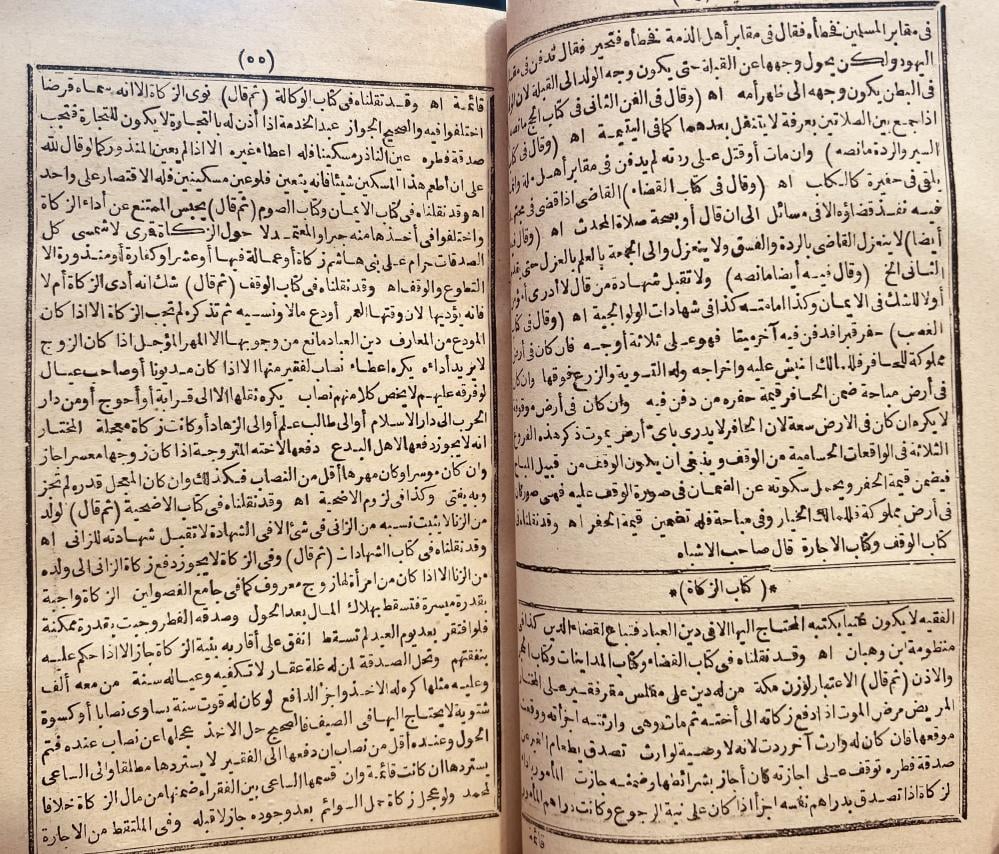 فى مقابر المسلمين فخطأه فقال فى مقابر أهل الذمة فخطأه فتحير فقال تدفن فى مقابر
اليهود ولكن يحول وجهها عن القبلة حتى يكون وجه الولد الى القبلة لان الولد
فى البطن يكون وجهه الى ظهر أمه اه (وقال فى الفن الثانى فى كتاب الحج مانصه)
اذا جمع بين الصلاتين بعرفة لا يتنفل بعدهما كما فى اليتيمة اه (وقال فى كتاب
السير والردة مانصه) وان مات أو قتل على ردته لم يدفن فى مقابر أهل ملة وانما
يلقى فى حفيرة كالكلب اه (وقال فى كتاب القضاء) القاضى اذا قضى فى مجتهد
فيه نفذ قضاؤه الا فى مسائل الى ان قال أو بصحة صلاة المحدث اه (وقال فيه
أيضا) لا ينعزل القاضى بالردة والفسق ولا ينعزل والى الجمعة بالعلم بالعزل حتى يقدم
الثانى الخ (وقال فيه أيضا مانصه) ولا تقبل شهادة من قال لا أدرى أمؤمن
أولا للشك فى الايمان وكذا امامته كذا فى شهادات الولوالجية اه (وقال فى كتاب
الغصب) حفر قبرا فدفن فيه آخر ميتا فهو على ثلاثة أوجه فان كان فى أرض
مملوكة للحافر فللمالك النبش عليه واخراجه وله التسوية والزرع فوقها وان كان
فى أرض مباحة ضمن الحافر قيمة حفره من دفن فيه وان كان فى أرض موقوفة
لا يكره ان كان فى الارض سعة لان الحافر لا يدرى بأى أرض يموت ذكر هذه الفروع
الثلاثة فى الواقعات الحسامية من الوقف وينبغى ان يكون الوقف من قبيل المباح
فيضمن قيمة الحفر ويحمل سكوته عن الضمان فى صورة الوقف عليه فهى صورتان
فى أرض مملوكة فللمالك الخيار وفى مباحة فله تضمين قيمة الحفر اه وقد نقلناه فى
كتاب الوقف وكتاب الاجارة قال صاحب الاشباه
*(كتاب الزكاة)*
الفقيه لا يكون غنيا بكتبه المحتاج اليها الا فى دين العباد فتباع لقضاء الدين كذا فى
منظومة ابن وهبان اه وقد نقلناه فى كتاب القضاء وكتاب المداينات وكتاب الحجر
والاذن (ثم قال) الاعتبار لوزن مكة من له دين على مفلس مقر فقير على المختار
المريض مرض الموت اذا دفع زكاته الى أخته ثم مات وهى وارثته اجزأته ووقعت
موقعها فان كان له وارث آخر ردت لانه لا وصية لوارث تصدق بطعام الغير عن
صدقة فطره توقف على اجازته فان أجاز بشرائطها وضمنه جازت المأمور بأداء
الزكاة اذا تصدق بدراهم نفسه اجزأ اذا كان على نية الرجوع وكانت دراهم المأمور
قائمة
(٥٥)
قائمة اه وقد نقلناه فى كتاب الوكالة (ثم قال) نوى الزكاة الا انه سماه قرضا
اختلفوا فيه والصحيح الجواز عبد الخدمة اذا أذن له بالتجارة لا يكون للتجارة فتجب
صدقة فطره عين الناذر مسكينا فله اعطاء غيره الا اذا لم يعين المنذور كما لو قال لله
على ان أطعم هذا المسكين شيئا فانه يتعين فلو عين مسكينين فله الاقتصار على واحد
اه وقد نقلناه فى كتاب الايمان وكتاب الصوم (ثم قال) يحبس الممتنع عن أداء الزكاة
واختلفوا فى أخذها منه جبرا والمعتمد لا حول الزكاة قمرى لا شمسى كل
الصدقات حرام على بنى هاشم زكاة أو عمالة فيها أو عشرا أو كفارة أو منذورة الا
التطوع والوقف اه وقد نقلناه فى كتاب الوقف (ثم قال) شك انه أدى الزكاة أم لا
فانه يؤديها لان وقتها العمر أودع مالا ونسيه ثم تذكره لم تجب الزكاة الا اذا كان
المودع من المعارف دين العباد مانع من وجوبها الا المهر المؤجل اذا كان الزوج
لا يريد أداءه يكره اعطاء نصاب لفقير منها الا اذا كان مديونا أو صاحب عيال
لو فرقه عليهم لا يخص كلا منهم نصاب يكره نقلها الا الى قرابة أو أحوج أو من دار
الحرب الى دار الاسلام أو الى طالب علم أو الى الزهاد أو كانت زكاة معجلة المختار
انه لا يجوز دفعها لاهل البدع دفعها لاخته المتزوجة اذا كان زوجها معسرا جاز
وان كان موسرا وكان مهرها أقل من النصاب فكذلك وان كان المعجل قدره لم تجز
وبه يفتى وكذا فى لزوم الاضحية اه وقد نقلناه فى كتاب الاضحية (ثم قال) لولد
من الزنا لا يثبت نسبه من الزانى فى شئ الا فى الشهادة لا تقبل شهادته للزانى اه
وقد نقلناه فى كتاب الشهادات (ثم قال) وفى الزكاة لا يجوز دفع زكاة الزانى الى ولده
من الزنا الا اذا كان من امرأة لها زوج معروف كما فى جامع الفصولين الزكاة واجبة
بقدرة ميسرة فتسقط بهلاك المال بعد الحول وصدقة الفطر وجبت بقدرة ممكنة
فلو افتقر بعد يوم العيد لم تسقط انفق على أقاربه بنية الزكاة جاز الا اذا حكم عليه
بنفقتهم وتحل الصدقة لمن له غلة عقار لا تكفيه وعياله سنة من معه ألف
وعليه مثلها كره له الاخذ واجز الدافع لو كان له قوت سنة يساوى نصابا أو كسوة
شتوية لا يحتاج اليها فى الصيف فالصحيح حل الاخذ عجلها عن نصاب عنده فتم
الحول وعنده أقل من نصاب ان دفعها الى الفقير لا يستردها مطلقا والى الساعى
يستردها ان كانت قائمة وان قسمها الساعى بين الفقراء ضمنها من مال الزكاة خلافا
لمحمد ولو عجل زكاة حمل السوائم بعد وجوده جاز لا قبله وفى الملتقط من الاجارة